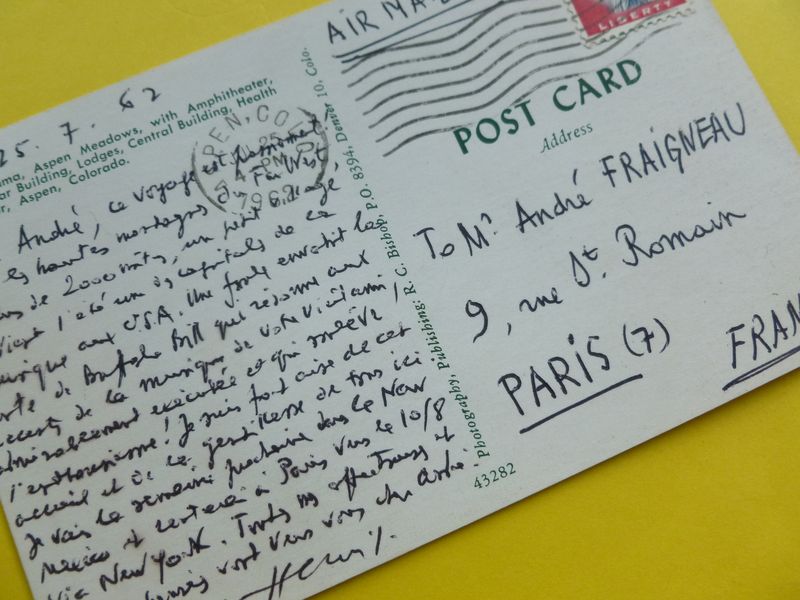 AIR MA
LIBERTY
POST CARD
Address
To Mr André FRAIGNEAU
9, rue St. Romain
PARIS (7)
FRAN
25. 7. 62
ma, Aspen Meadows, with Amphitheater,
ar Building, Lodges, Central Building, Health
r, Aspen, Colorado.
PEN, CO
25
PM
1962
Photography, Publishing: R. C. Bishop, P.O. 8394, Denver 10, Colo.
43282
André, ce voyage est passionnant,
les hautes montagnes du Far West,
de 2000 mts, un petit village
l'été une des capitales de la
musique aux U.S.A. Une foule envahit la
de Buffalo Bill qui résonne aux
accents de la musique de votre
admirablement exécutée et qui soulève
l'enthousiasme! Je suis fort aise de cet
accueil et de la gentillesse de tous ici
Je vais la semaine prochaine dans le New
Mexico et rentrerai à Paris vers le 10/8
via New York. Toutes mes affectueuses
vont vers vous cher André.
Henri